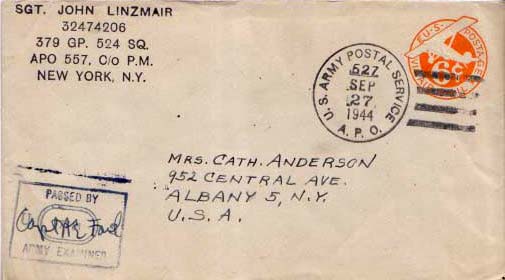 SGT. JOHN LINZMAIR
32474206
379 GP. 524 SQ.
APO 557, C/O P.M.
NEW YORK, N.Y.
U.S. ARMY POSTAL SERVICE
527
SEP
27
1944
A. P. O.
U.S. POSTAGE
6¢
VIA AIR MAIL
MRS. CATH. ANDERSON
952 CENTRAL AVE.
ALBANY 5, N.Y.
U.S.A.
PASSED BY
ARMY EXAMINER